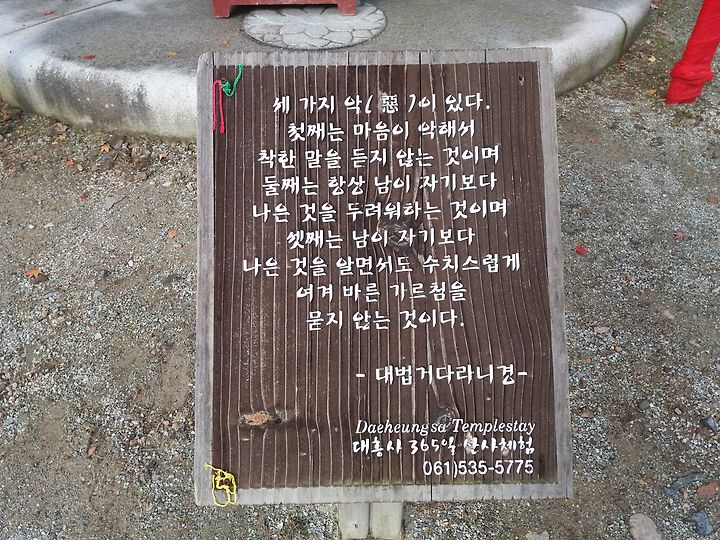 세 가지 악(惡)이 있다.
첫째는 마음이 악해서
착한 말을 듣지 않는 것이며
둘째는 항상 남이 자기보다
나은 것을 두려워하는 것이며
셋째는 남이 자기보다
나은 것을 알면서도 수치스럽게
여겨 바른 가르침을
묻지 않는 것이다.
- 대법거다라니경-
Daeheungsa Templestay
대흥사 365일 산사체험
061)535-5775